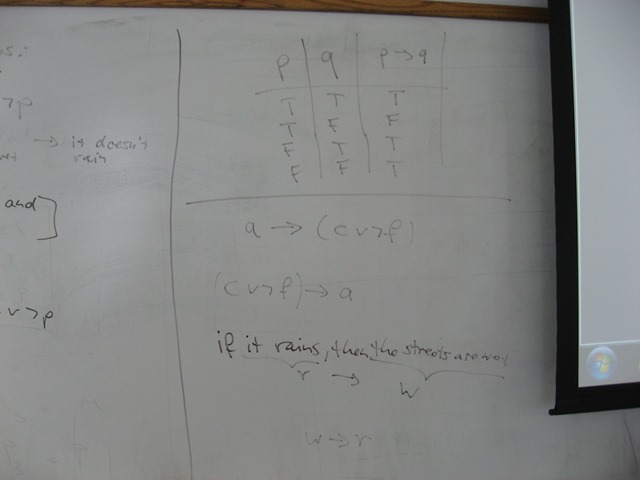 ¬p
→ it doesn't
rain
and
v ¬p
p q p → q
T T T
T F F
F T T
F F T
a → (c v ¬f)
(c v ¬f) → a
if it rains, then the streets are wet
r → w
w → r